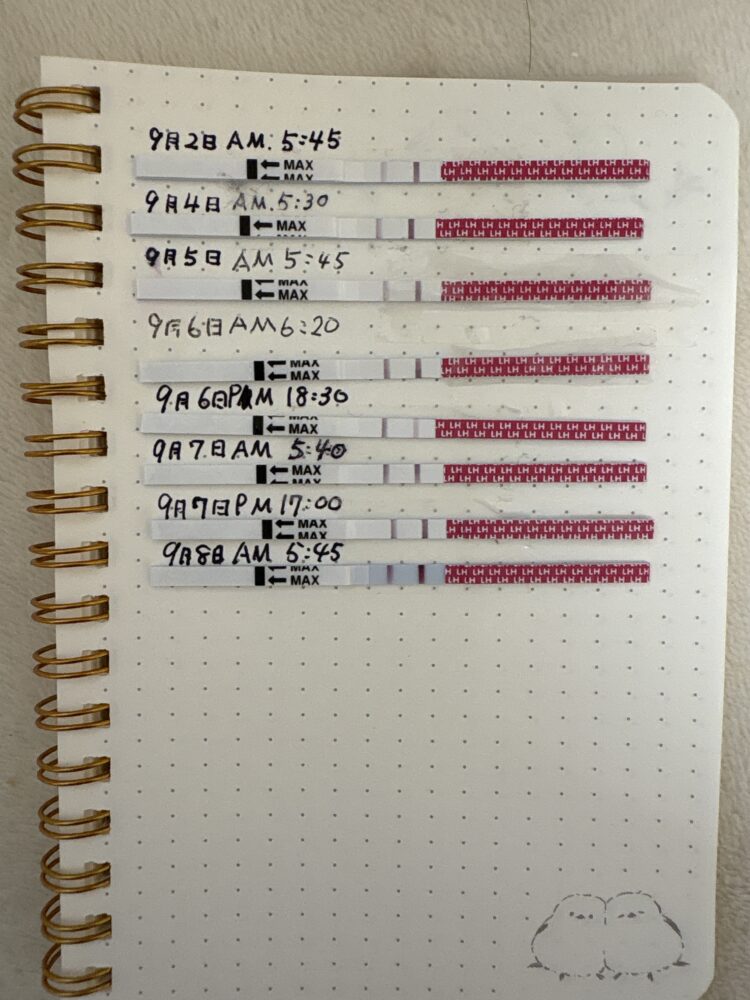 9月2日 AM. 5:45
← MAX
← MAX
LH LH LH LH LH LH LH LH LH LH
9月4日 AM.5:30
← MAX
LH LH LH LH LH LH LH LH LH LH
9月5日 AM 5:45
← MAX
← MAX
LH LH LH LH LH LH LH LH LH LH
9月6日 AM 6:20
← MAX
← MAX
LH LH LH LH LH LH LH LH LH LH
9月6日PM 18:30
← MAX
← MAX
LH LH LH LH LH LH LH LH LH LH
9月7日AM 5:40
← MAX
← MAX
LH LH LH LH LH LH LH LH LH LH
9月7日PM 17:00
← MAX
← MAX
LH LH LH LH LH LH LH LH LH LH
9月8日 AM 5:45
← MAX
← MAX
LH LH LH LH LH LH LH LH LH LH